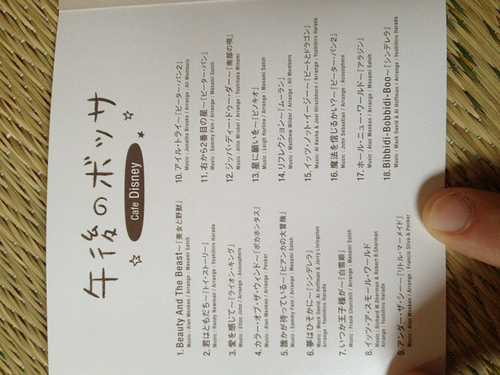 午後のボッサ
Cafe Disney
1. Beauty And The Beast~『美女と野獣』
Music : Alan Menken / Arrange : Masami Satoh
2. 君はともだち~『トイ・ストーリー』
Music : Randy Newman / Arrange : Yoshihiro Harada
3. 愛を感じて~『ライオン・キング』
Music : Elton John / Arrange : Atmosphere
4. カラー・オブ・ザ・ウィンド~『ポカホンタス』
Music : Alan Menken / Arrange : Parker
5. 誰かが待っている~『ビアンカの大冒険』
Music : Sammy Fain / Arrange : Masami Satoh
6. 夢はひそかに~『シンデレラ』
Music : Mack David, Al Hoffman & Jerry Livingston
Arrange : Yoshihiro Harada
7. いつか王子様が~『白雪姫』
Music : Frank Churchill / Arrange : Masami Satoh
8. イッツ・ア・スモール・ワールド
Music : Richard M.Sherman & Robert B.Sherman
Arrange : Yoshihiro Harada
9. アンダー・ザ・シー~『リトル・マーメイド』
Music : Alan Menken / Arrange : Francis Silva & Parker
10. アイル・トライ~『ピーター・パン2』
Music : Jonatha Brooke / Arrange : All Members
11. 右から2番目の星~『ピーター・パン』
Music : Sammy Fain / Arrange : Masami Satoh
12. ジッパ・ディー・ドゥー・ダー~『南部の唄』
Music : Allie Wrubel / Arrange : Yoshitaka Minami
13. 星に願いを~『ピノキオ』
Music : Leigh Harline / Arrange : Masami Satoh
14. リフレクション~『ムーラン』
Music : Matthew Wilder / Arrange : All Members
15. イッツ・ノット・イージー~『ピートとドラゴン』
Music : Al Kasha & Joel Hirschhorn / Arrange : Yoshihiro Harada
16. 魔法を信じるかい?~『ピーター・パン2』
Music : John Sebastian / Arrange : Atmosphere
17. ホール・ニュー・ワールド~『アラジン』
Music : Alan Menken / Arrange : Masami Satoh
18. Bibbidi-Bobbidi-Boo~『シンデレラ』
Music : Mack David & Al Hoffman / Arrange : Yoshihiro Harada